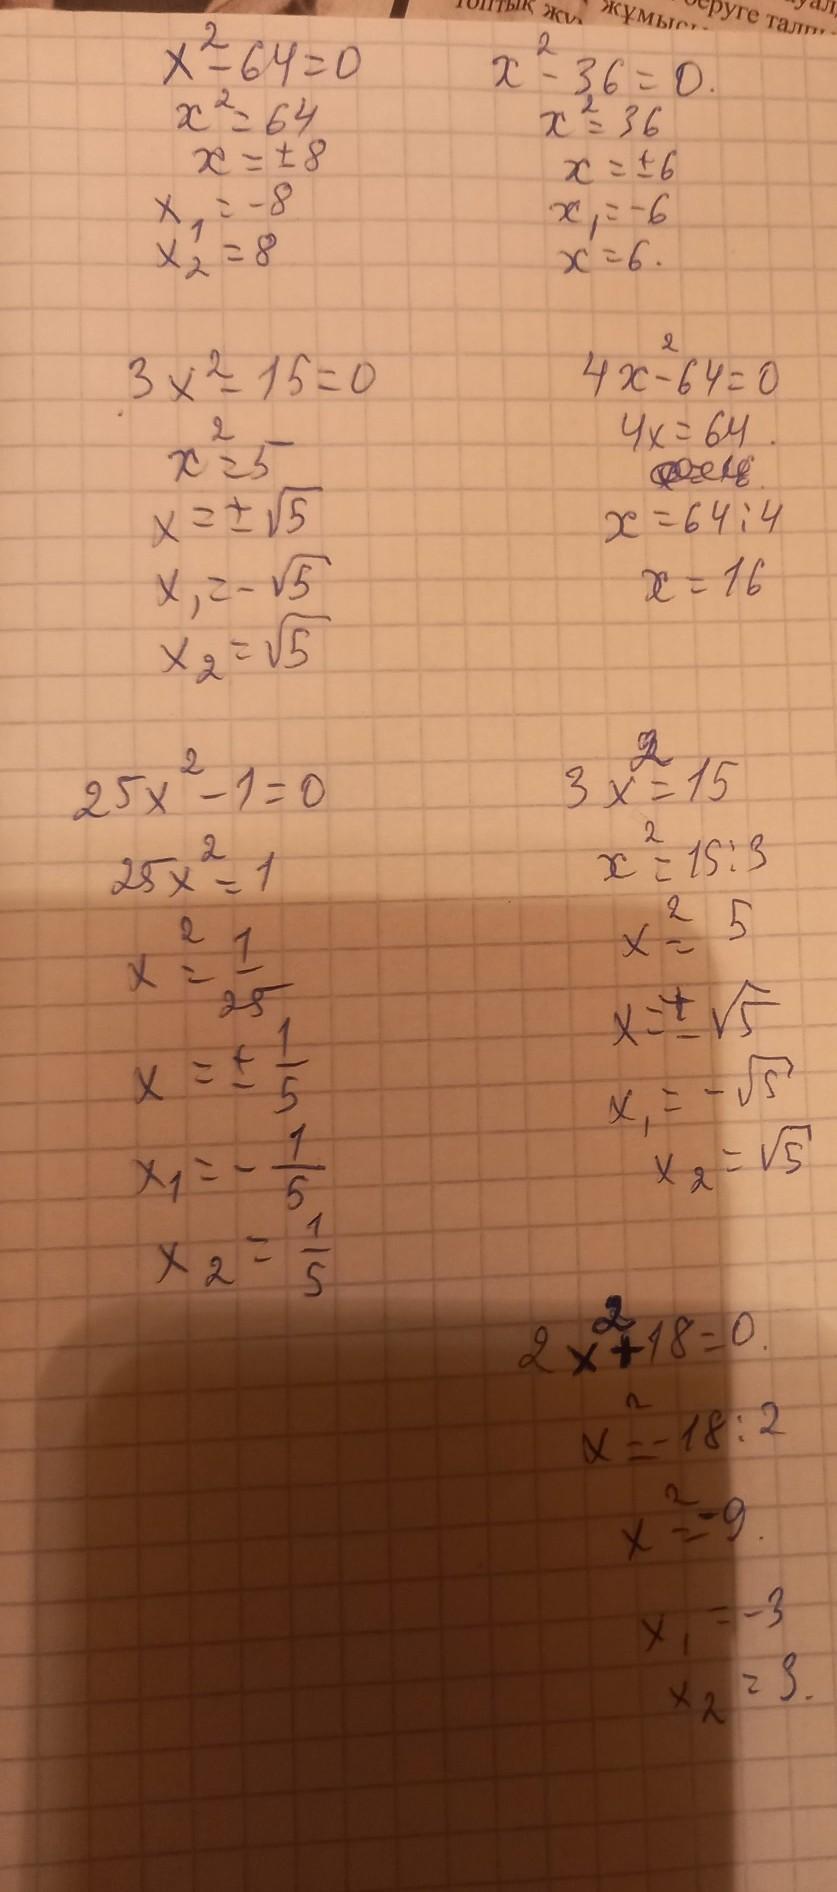 жұмысы
беруге
x² - 64 = 0
x² = 64
x = ± 8
x₁ = -8
x₂ = 8
x² - 36 = 0.
x² = 36
x = ± 6
x₁ = -6
x = 6.
3x² - 15 = 0
x² = 5
x = ± √5
x₁ = - √5
x₂ = √5
4x² - 64 = 0
4x = 64.
x = 64 : 4
x = 16
25x² - 1 = 0
25x² = 1
x² = 1/25
x = ± 1/5
x₁ = - 1/5
x₂ = 1/5
3x² = 15
x² = 15 : 3
x² = 5
x = ± √5
x₁ = - √5
x₂ = √5
2x² + 18 = 0.
x² = -18 : 2
x² = -9.
x₁ = -3
x₂ = 3.